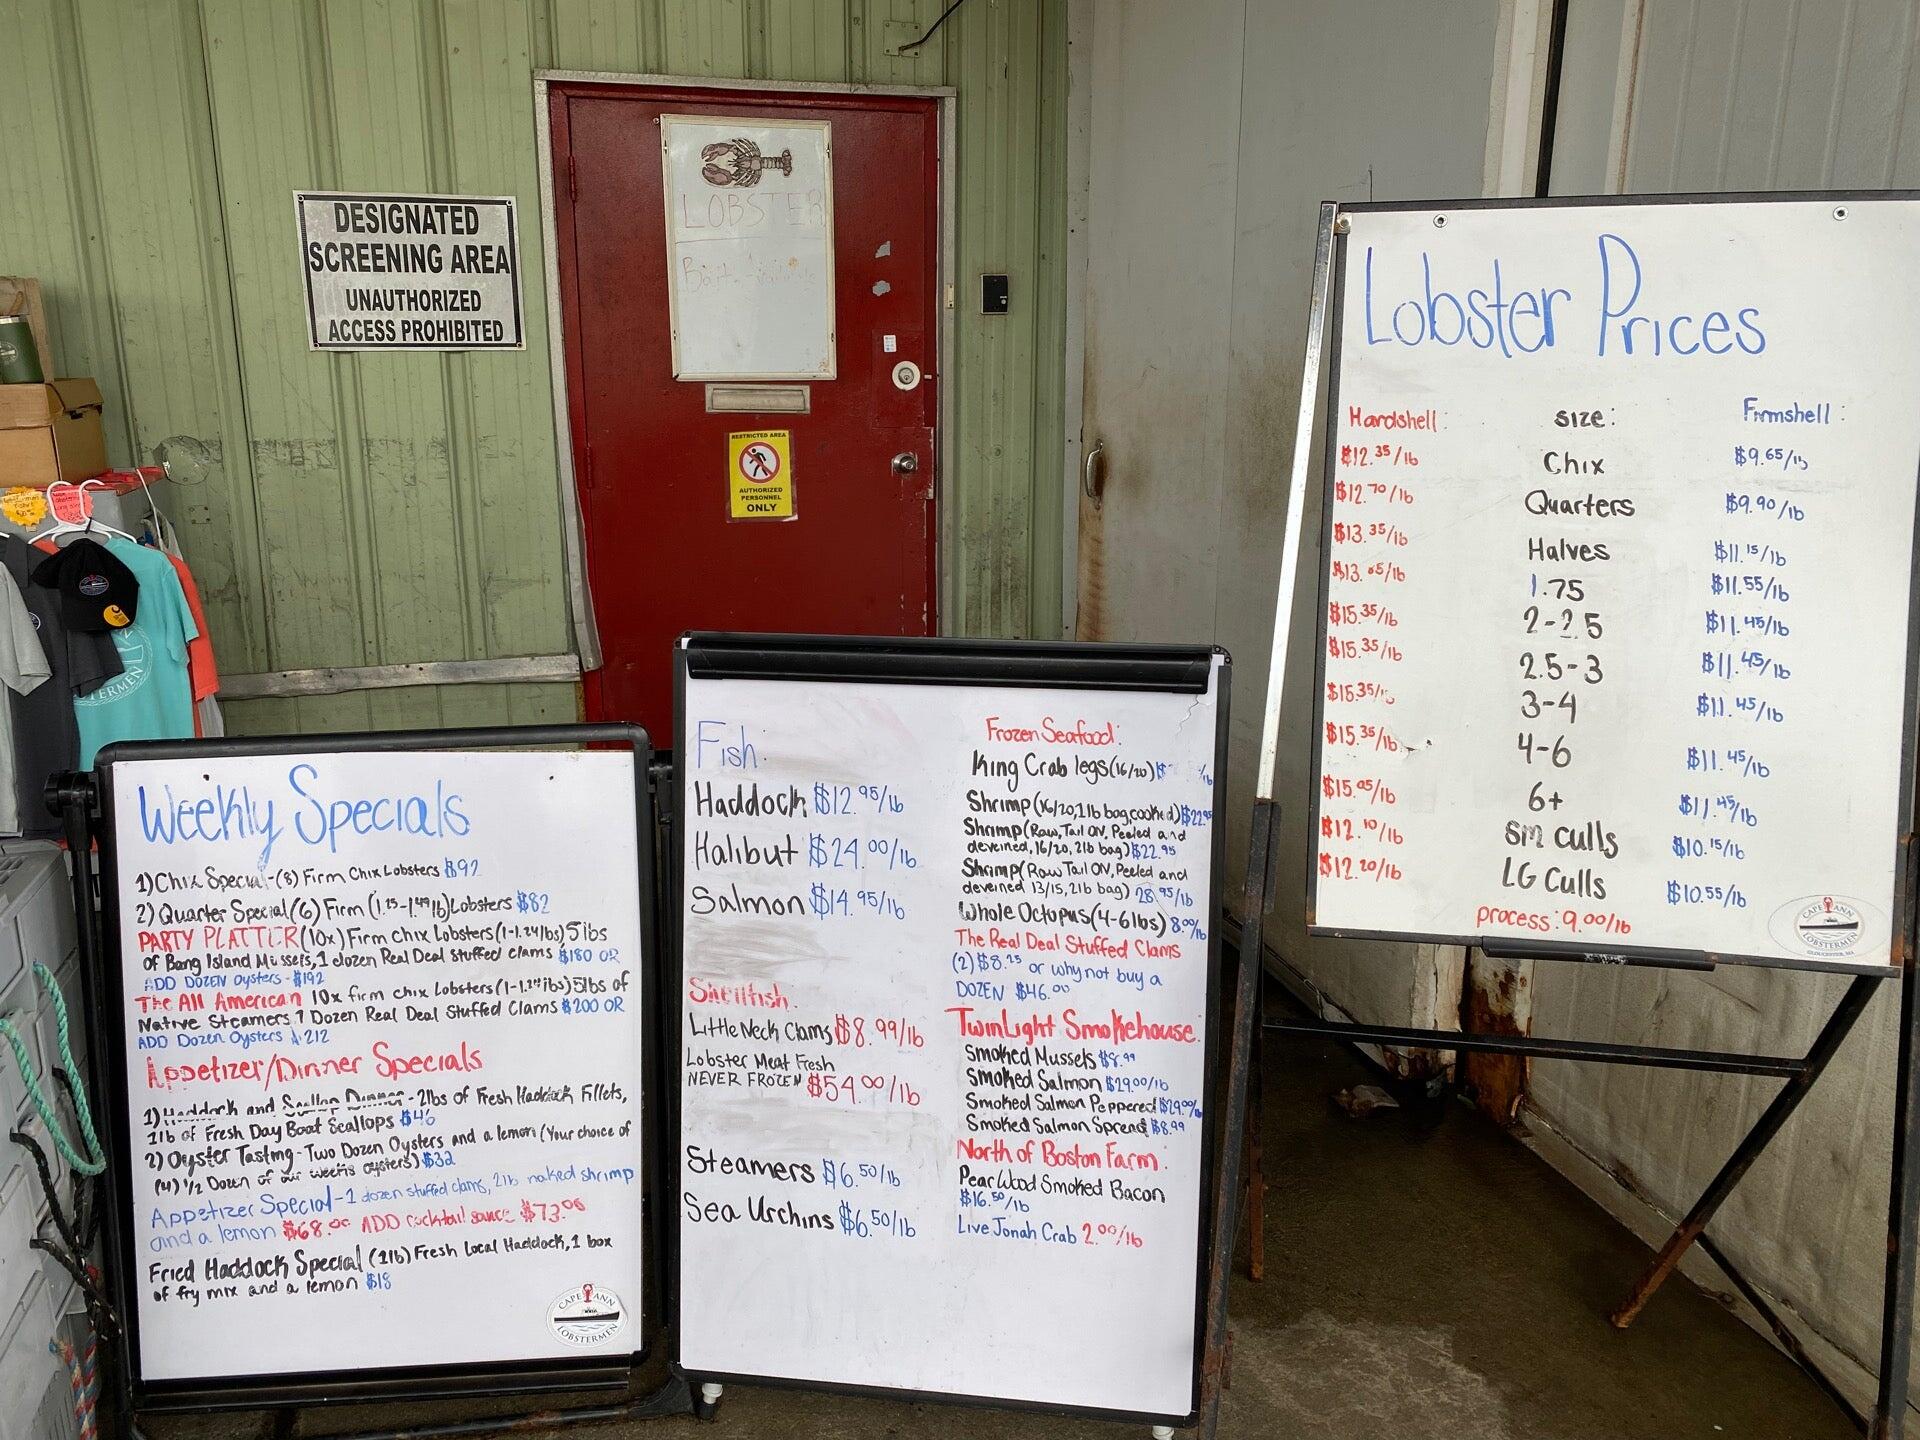 DESIGNATED
SCREENING AREA
UNAUTHORIZED
ACCESS PROHIBITED
LOBSTER
RESTRICTED AREA
AUTHORIZED
PERSONNEL
ONLY
Weekly Specials
1) Chix Special-(8) Firm Chix Lobsters $92
2) Quarter Special (6) Firm (1.25-1.49lb) Lobsters $82
PARTY PLATTER (10x) Firm Chix Lobsters (1-1.24lbs) 5lbs
of Bang Island Mussels, 1 dozen Real Deal Stuffed clams $180 OR
ADD DOZEN oysters - $192
The All American 10x firm chix Lobsters (1-1.24lbs) 5lbs of
Native Steamers 1 Dozen Real Deal Stuffed Clams $200 OR
ADD Dozen Oysters $212
Appetizer/Dinner Specials
1) Haddock and Scallop Dinner - 2lbs of Fresh Haddock Fillets,
1lb of Fresh Day Boat Scallops $46
2) Oyster Tasting - Two Dozen Oysters and a lemon (Your choice of
(4) 1/2 Dozen of our weeks oysters) $32
Appetizer Special - 1 dozen stuffed clams, 2lb naked shrimp
and a lemon $68.00 ADD cocktail sauce $73.00
Fried Haddock Special (1lb) Fresh Local Haddock, 1 box
of fry mix and a lemon $18
CAPE ANN
LOBSTERMEN
Fish:
Haddock $12.95/lb
Halibut $24.00/lb
Salmon $14.95/lb
Shellfish:
Little Neck Clams $8.99/lb
Lobster Meat Fresh
NEVER FROZEN $54.00/lb
Steamers $6.50/lb
Sea Urchins $6.50/lb
Frozen Seafood:
King Crab legs (16/20) $ /lb
Shrimp (16/20, 2lb bag, cooked) $22.95
Shrimp (Raw, Tail ON, Peeled and
deveined, 16/20, 2lb bag) $22.95
Shrimp (Raw Tail ON, Peeled and
deveined 13/15, 2lb bag) 28.95/lb
Whole Octopus (4-6lbs) 8.00/lb
The Real Deal Stuffed Clams
(2) $8.25 or why not buy a
DOZEN $46.00
TwinLight Smokehouse:
Smoked Mussels $8.99
Smoked Salmon $29.00/lb
Smoked Salmon Peppered $29.00/lb
Smoked Salmon Spread $8.99
North of Boston Farm:
Pear Wood Smoked Bacon
$16.50/lb
Live Jonah Crab 2.00/lb
Lobster Prices
Hardshell: size: Firmshell:
$12.35/lb Chix $9.65/lb
$12.70/lb Quarters $9.90/lb
$13.35/lb Halves $11.15/lb
$13. /lb 1.75 $11.55/lb
$15.35/lb 2-2.5 $11.45/lb
$15.35/lb 2.5-3 $11.45/lb
$15.35/lb 3-4 $11.45/lb
$15.35/lb 4-6 $11.45/lb
$15.05/lb 6+ $11.45/lb
$12.10/lb SM Culls $10.15/lb
$12.20/lb LG Culls $10.55/lb
process: 9.00/lb
CAPE ANN
LOBSTERMEN
GLOUCESTER, MA